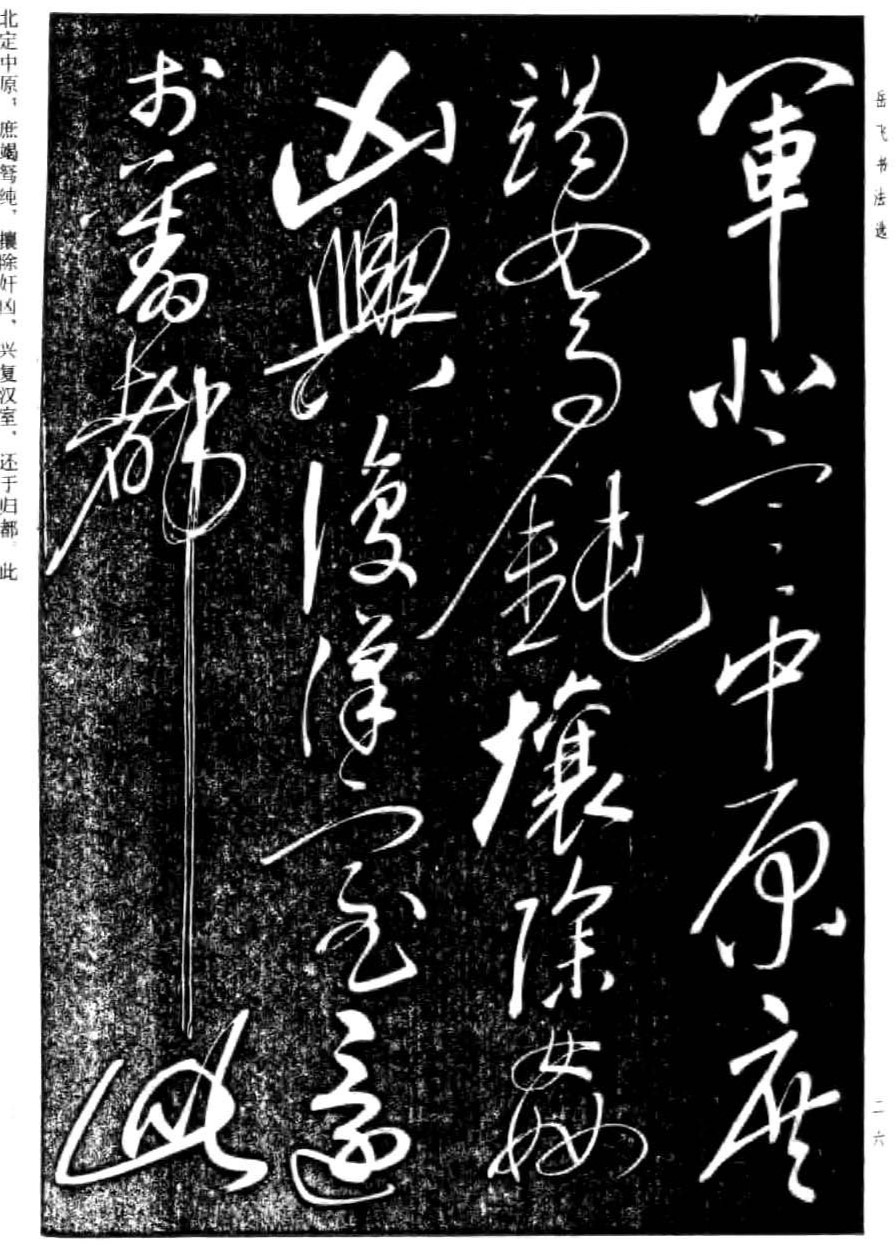 岳飞书法选
軍北定中原庶
竭駑鈍攘除姦
凶興復漢室還
於舊都此
二六
北定中原，庶竭驽纯，攘除奸凶、兴复汉室，还于归都。此